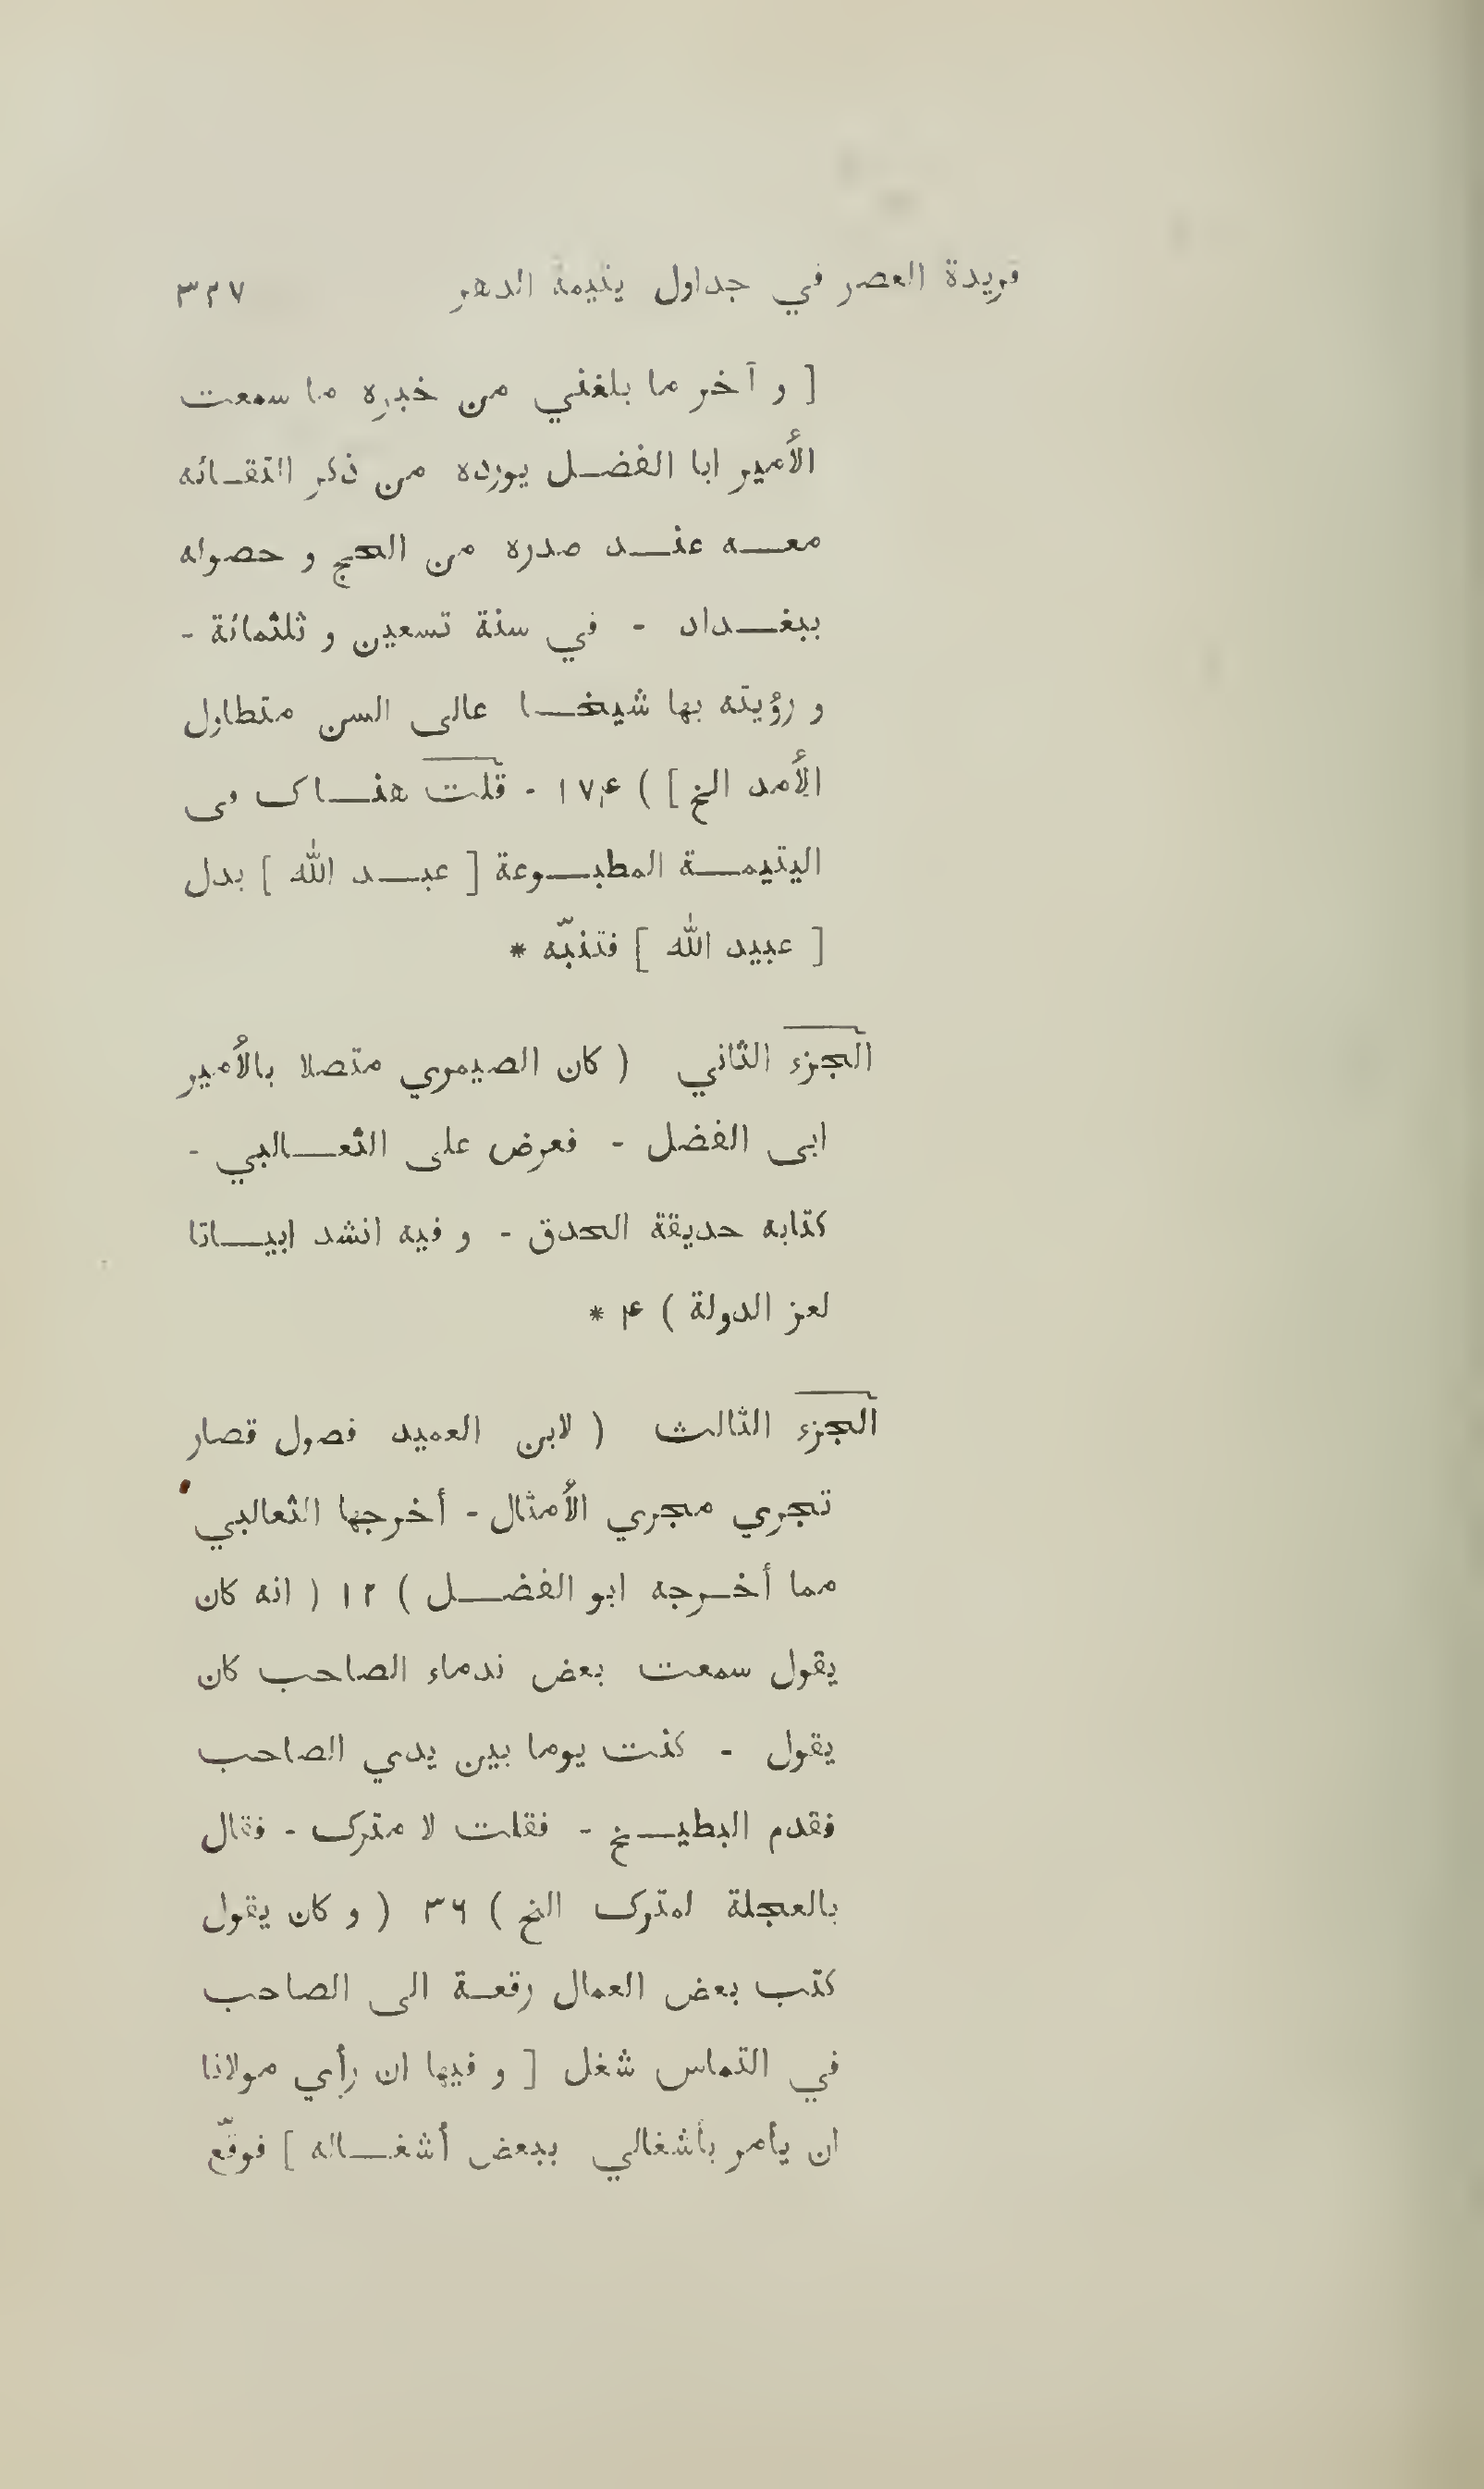 فريدة العصر في جداول يتيمة الدهر ٣٢٧
[ و آخر ما بلغني من خبره ما سمعت
الأمير ابا الفضل يورده من ذكر التقائه
معه عند صدره من الحج و حصوله
ببغداد - في سنة تسعين و ثلثمائة -
و رؤيته بها شيخا عالى السن متطاول
الأمد الخ ] ) ١٧۴ - قلت هناك في
اليتيمة المطبوعة [ عبد الله ] بدل
[ عبيد الله ] فتنبّه *
الجزء الثاني ( كان الصيمري متصلا بالأمير
ابى الفضل - فعرض على الثعالبي -
كتابه حديقة الحدق - و فيه انشد ابياتا
لعز الدولة ) ۴ *
الجزء الثالث ( لابن العميد فصول قصار
تجري مجري الأمثال - أخرجها الثعالبي
مما أخرجه ابو الفضل ) ١٢ ( انه كان
يقول سمعت بعض ندماء الصاحب كان
يقول - كنت يوما بين يدي الصاحب
فقدم البطيخ - فقلت لا متدرك - فقال
بالعجلة لمتدرك الخ ) ٣۶ ( و كان يقول
كتب بعض العمال رقعة الى الصاحب
في التماس شغل [ و فيها ان رأي مولانا
ان يأمر بأشغالي ببعض أشغاله ] فوقّع